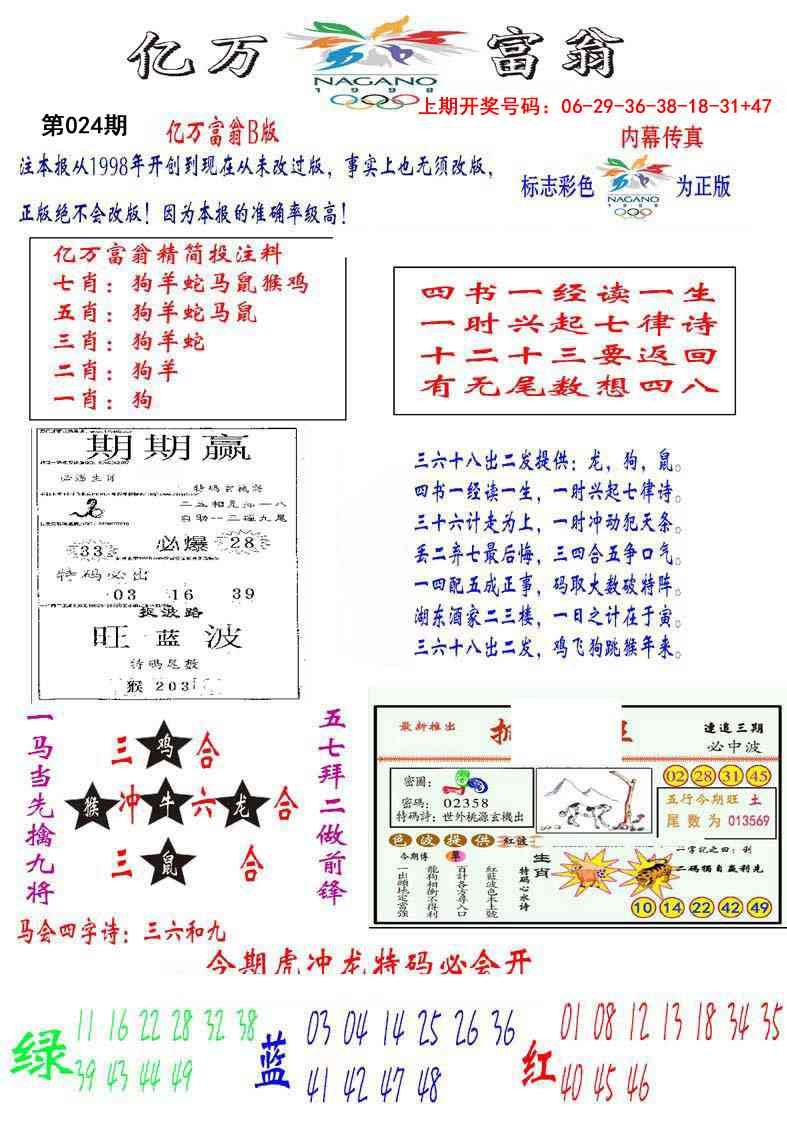 亿万 富翁
NAGANO
1998
上期开奖号码：06-29-36-38-18-31+47
第024期
亿万富翁B版
内幕传真
注本报从1998年开创到现在从未改过版，事实上也无须改版，
正版绝不会改版！因为本报的准确率级高！
标志彩色
NAGANO
1998
为正版
亿万富翁精简投注料
七肖：狗羊蛇马鼠猴鸡
五肖：狗羊蛇马鼠
三肖：狗羊蛇
二肖：狗羊
一肖：狗
四书一经读一生
一时兴起七律诗
十二十三要返回
有无尾数想四八
期期赢
必选生肖
特码玄机诗
33
必爆
28
特码必出
03 16 39
捉波路
旺蓝波
特码尾数
猴 203
三六十八出二发提供：龙，狗，鼠。
四书一经读一生，一时兴起七律诗。
三十六计走为上，一时冲动犯天条。
丢二弃七最后悔，三四合五争口气。
一四配五成正事，码取大数破特阵。
湖东酒家二三楼，一日之计在于寅。
三六十八出二发，鸡飞狗跳猴年来。
一马当先擒九将
三 鸡 合
猴 冲 牛 六 龙 合
三 鼠 合
五七拜二做前锋
最新推出
速追三期
必中波
密圖：
密碼：02358
特碼詩：世外桃源玄機出
02 28 31 45
五行今期旺 土
尾数为 013569
色波提供
紅波
今期博
單
一出頭地定當強
龍狗相衝不得利
百計各方尋入口
紅藍波色本土號
特码心水诗
生肖
一字記之曰：利
二碼獨自贏利兆
10 14 22 42 49
马会四字诗：三六和九
今期虎冲龙特码必会开
绿
11 16 22 28 32 38
39 43 44 49
蓝
03 04 14 25 26 36
41 42 47 48
红
01 08 12 13 18 34 35
40 45 46